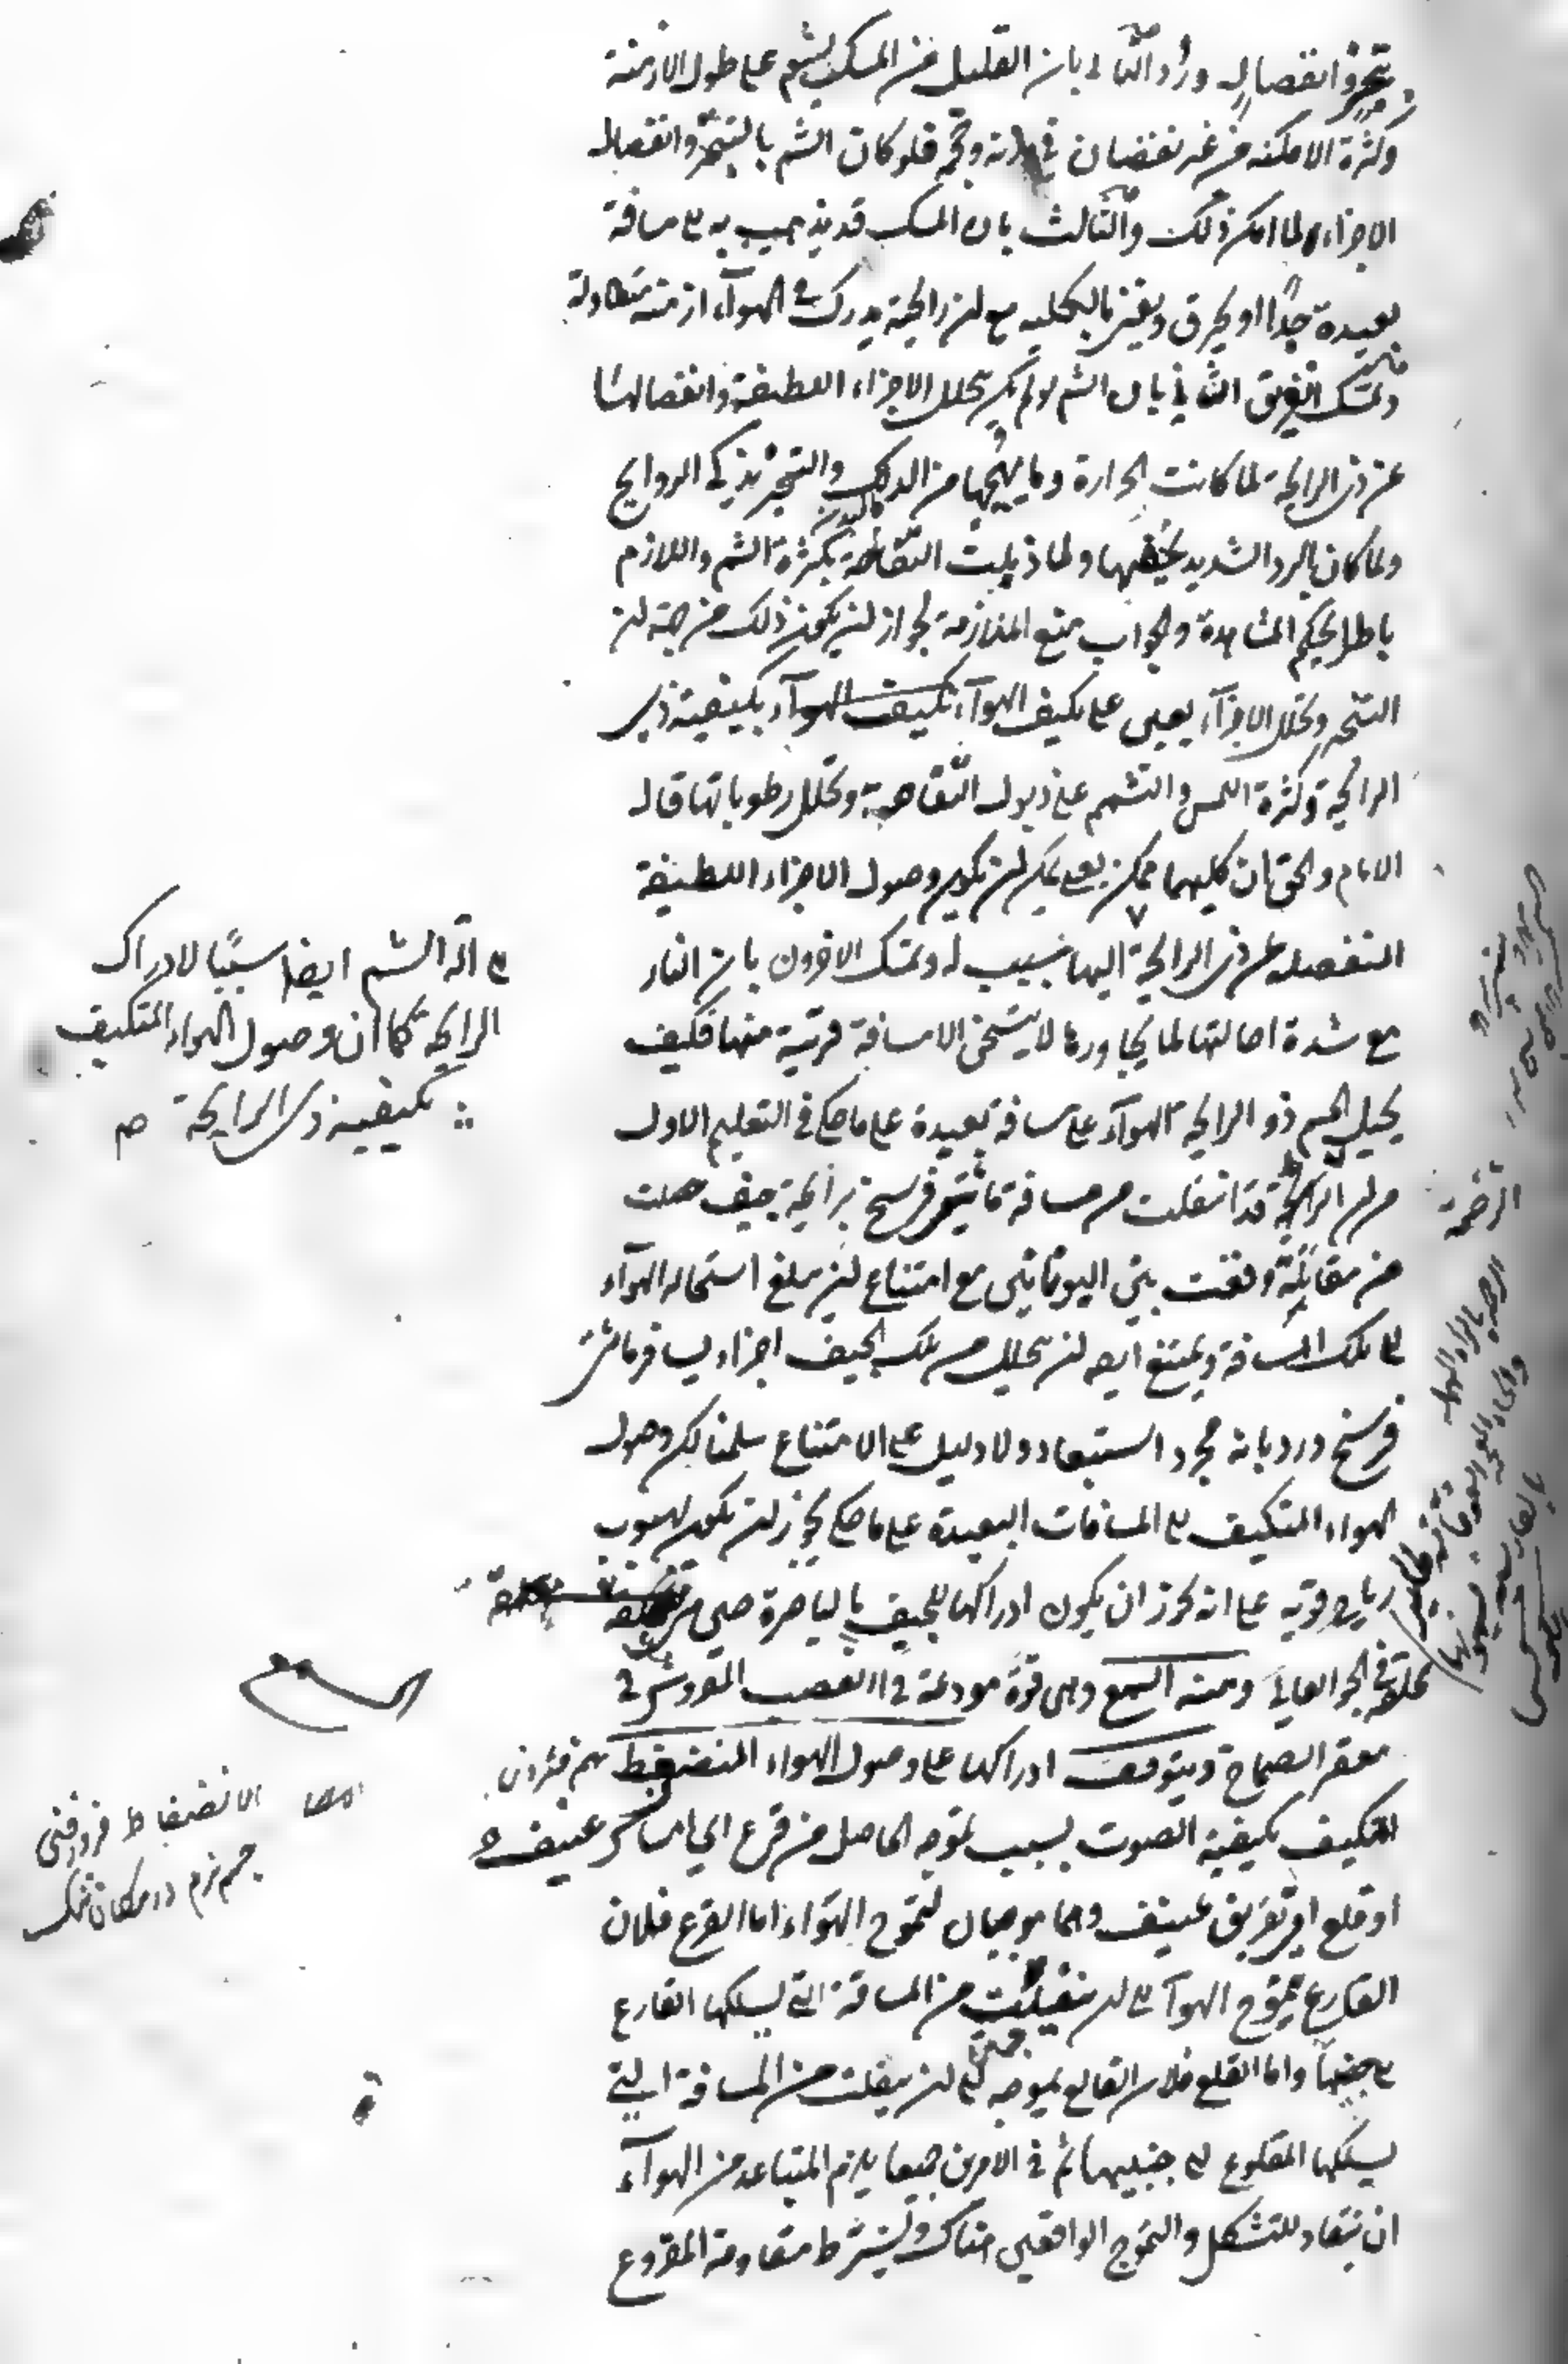 بتبخر وانفصال ورُد الثانى بان القليل من المسك يشم على طول الازمنة
وكثرة الامكنة من غير نقصان فى وزنه وحجمه فلو كان الشم بالتبخر وانفصال
الاجزاء لما امكن ذلك والثالث بان المسك قد يذهب به الى مسافة
بعيدة جدًا او يحرق ويفنى بالكلية مع ان رائحته يدرك فى الهوآء ازمنة متطاولة
وتمسك الفريق الثانى بان الشم لو لم يكن بتحلل الاجزاء اللطيفة وانفصالها
عن ذى الرائحة لما كانت الحرارة وما يهيجها من الدلك والتبخير يذكى الروايح
ولما كان البرد الشديد يخفيها ولما ذبلت التفاحة بكثرة الشم واللازم
باطل بحكم المشاهدة والجواب منع الملازمة لجواز ان يكون ذلك من جهة ان
التبخر وتحلل الاجزآء يعين على تكيف الهوآء بكيفية ذى
الرائحة وكثرة اللمس والتشمم على ذبول التفاحة وتحلل رطوباتها قال
الامام والحق ان كليهما ممكن يعنى يمكن ان يكون وصول الاجزاء اللطيفة
المنفصلة عن ذى الرائحة اليها سبب له وتمسك الاخرون بان النار
مع شدة احالتها لما يجاورها لا يتسخن الا مسافة قريبة منها فكيف
يحيل الجسم ذو الرائحة الهوآء على مسافة بعيدة على ما حكى فى التعليم الاول
من ان الرخمة قد انتقلت من مسافة مائتى فرسخ برائحة جيف حصلت
من مقاتلة وقعت بين اليونانيين مع امتناع ان يبلغ استحالة الهوآء
الى تلك المسافة ويمتنع ايضا ان يتحلل من تلك الجيف اجزاء يسافر مائتى
فرسخ ورد بانه مجرد استبعاد ولا دليل على الامتناع سلمنا لكن وصول
الهواء المتكيف الى المسافات البعيدة على ما حكى يجوز ان يكون لهبوب
رياح قوية على انه يجوز ان يكون ادراكها للجيف بالباصرة حين
محلقة فى الجو العالى ومنه السمع وهى قوة مودعة فى العصب المفروش فى
مقعر الصماخ ويتوقف ادراكها على وصول الهواء المنضغط
المتكيف بكيفية الصوت بسبب تموجه الحاصل من قرع اى امساس عنيف
او قلع اى تفريق عنيف وهما موجبان لتموج الهوآء اما القرع فلان
القارع يموج الهوآء الى ان ينفلت من المسافة التى يسلكها القارع
الى جنبيها واما القلع فلان القالع يموجه الى ان ينفلت من المسافة التى
يسلكها المقلوع الى جنبيها ثم فى الامرين جميعا يلزم المتباعد من الهوآء
ان ينقاد للتشكل والتموج الواقعين هناك ويشترط مقاومة المقروع
الى آلة الشم ايضا سببًا لادراك
الرايحة كما ان وصول الهواء المتكيف
بكيفية ذى الرايحة
السمع
الانضغاط فرو رفتن
جسم نرم در مكان تنگ
الرخمة